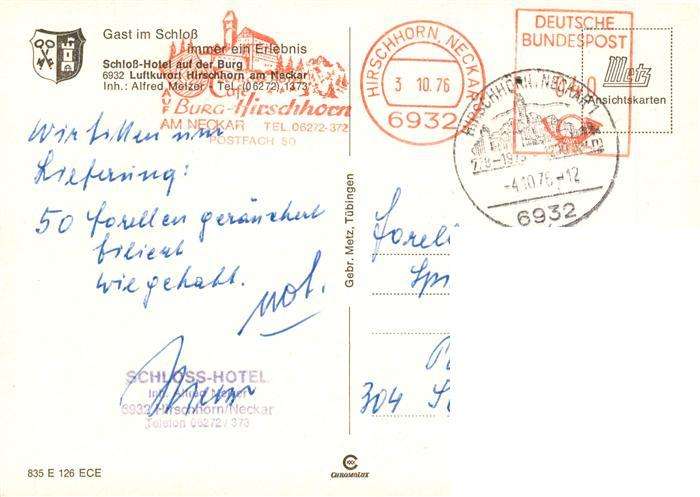 Gast im Schloß
immer ein Erlebnis
Schloß-Hotel auf der Burg
6932 Luftkurort Hirschhorn am Neckar
Inh.: Alfred Metzer Tel. (06272) 1373
Burg-Hirschhorn
AM NECKAR TEL. 06272-372
POSTFACH 50
HIRSCHHORN, NECKAR
3 10.76
6932
DEUTSCHE
BUNDESPOST
Metz
Ansichtskarten
HIRSCHHORN, NECKAR
-4.10.76-12
6932
Wir bitten um
Lieferung:
50 Forellen geräuchert
filiert
wie gehabt.
Gebr. Metz, Tübingen
Forel
Sp
304 S
SCHLOSS-HOTEL
Inh. Alfred Metzer
6932 Hirschhorn/Neckar
Telefon 06272 / 373
835 E 126 ECE
CHROMOLUX